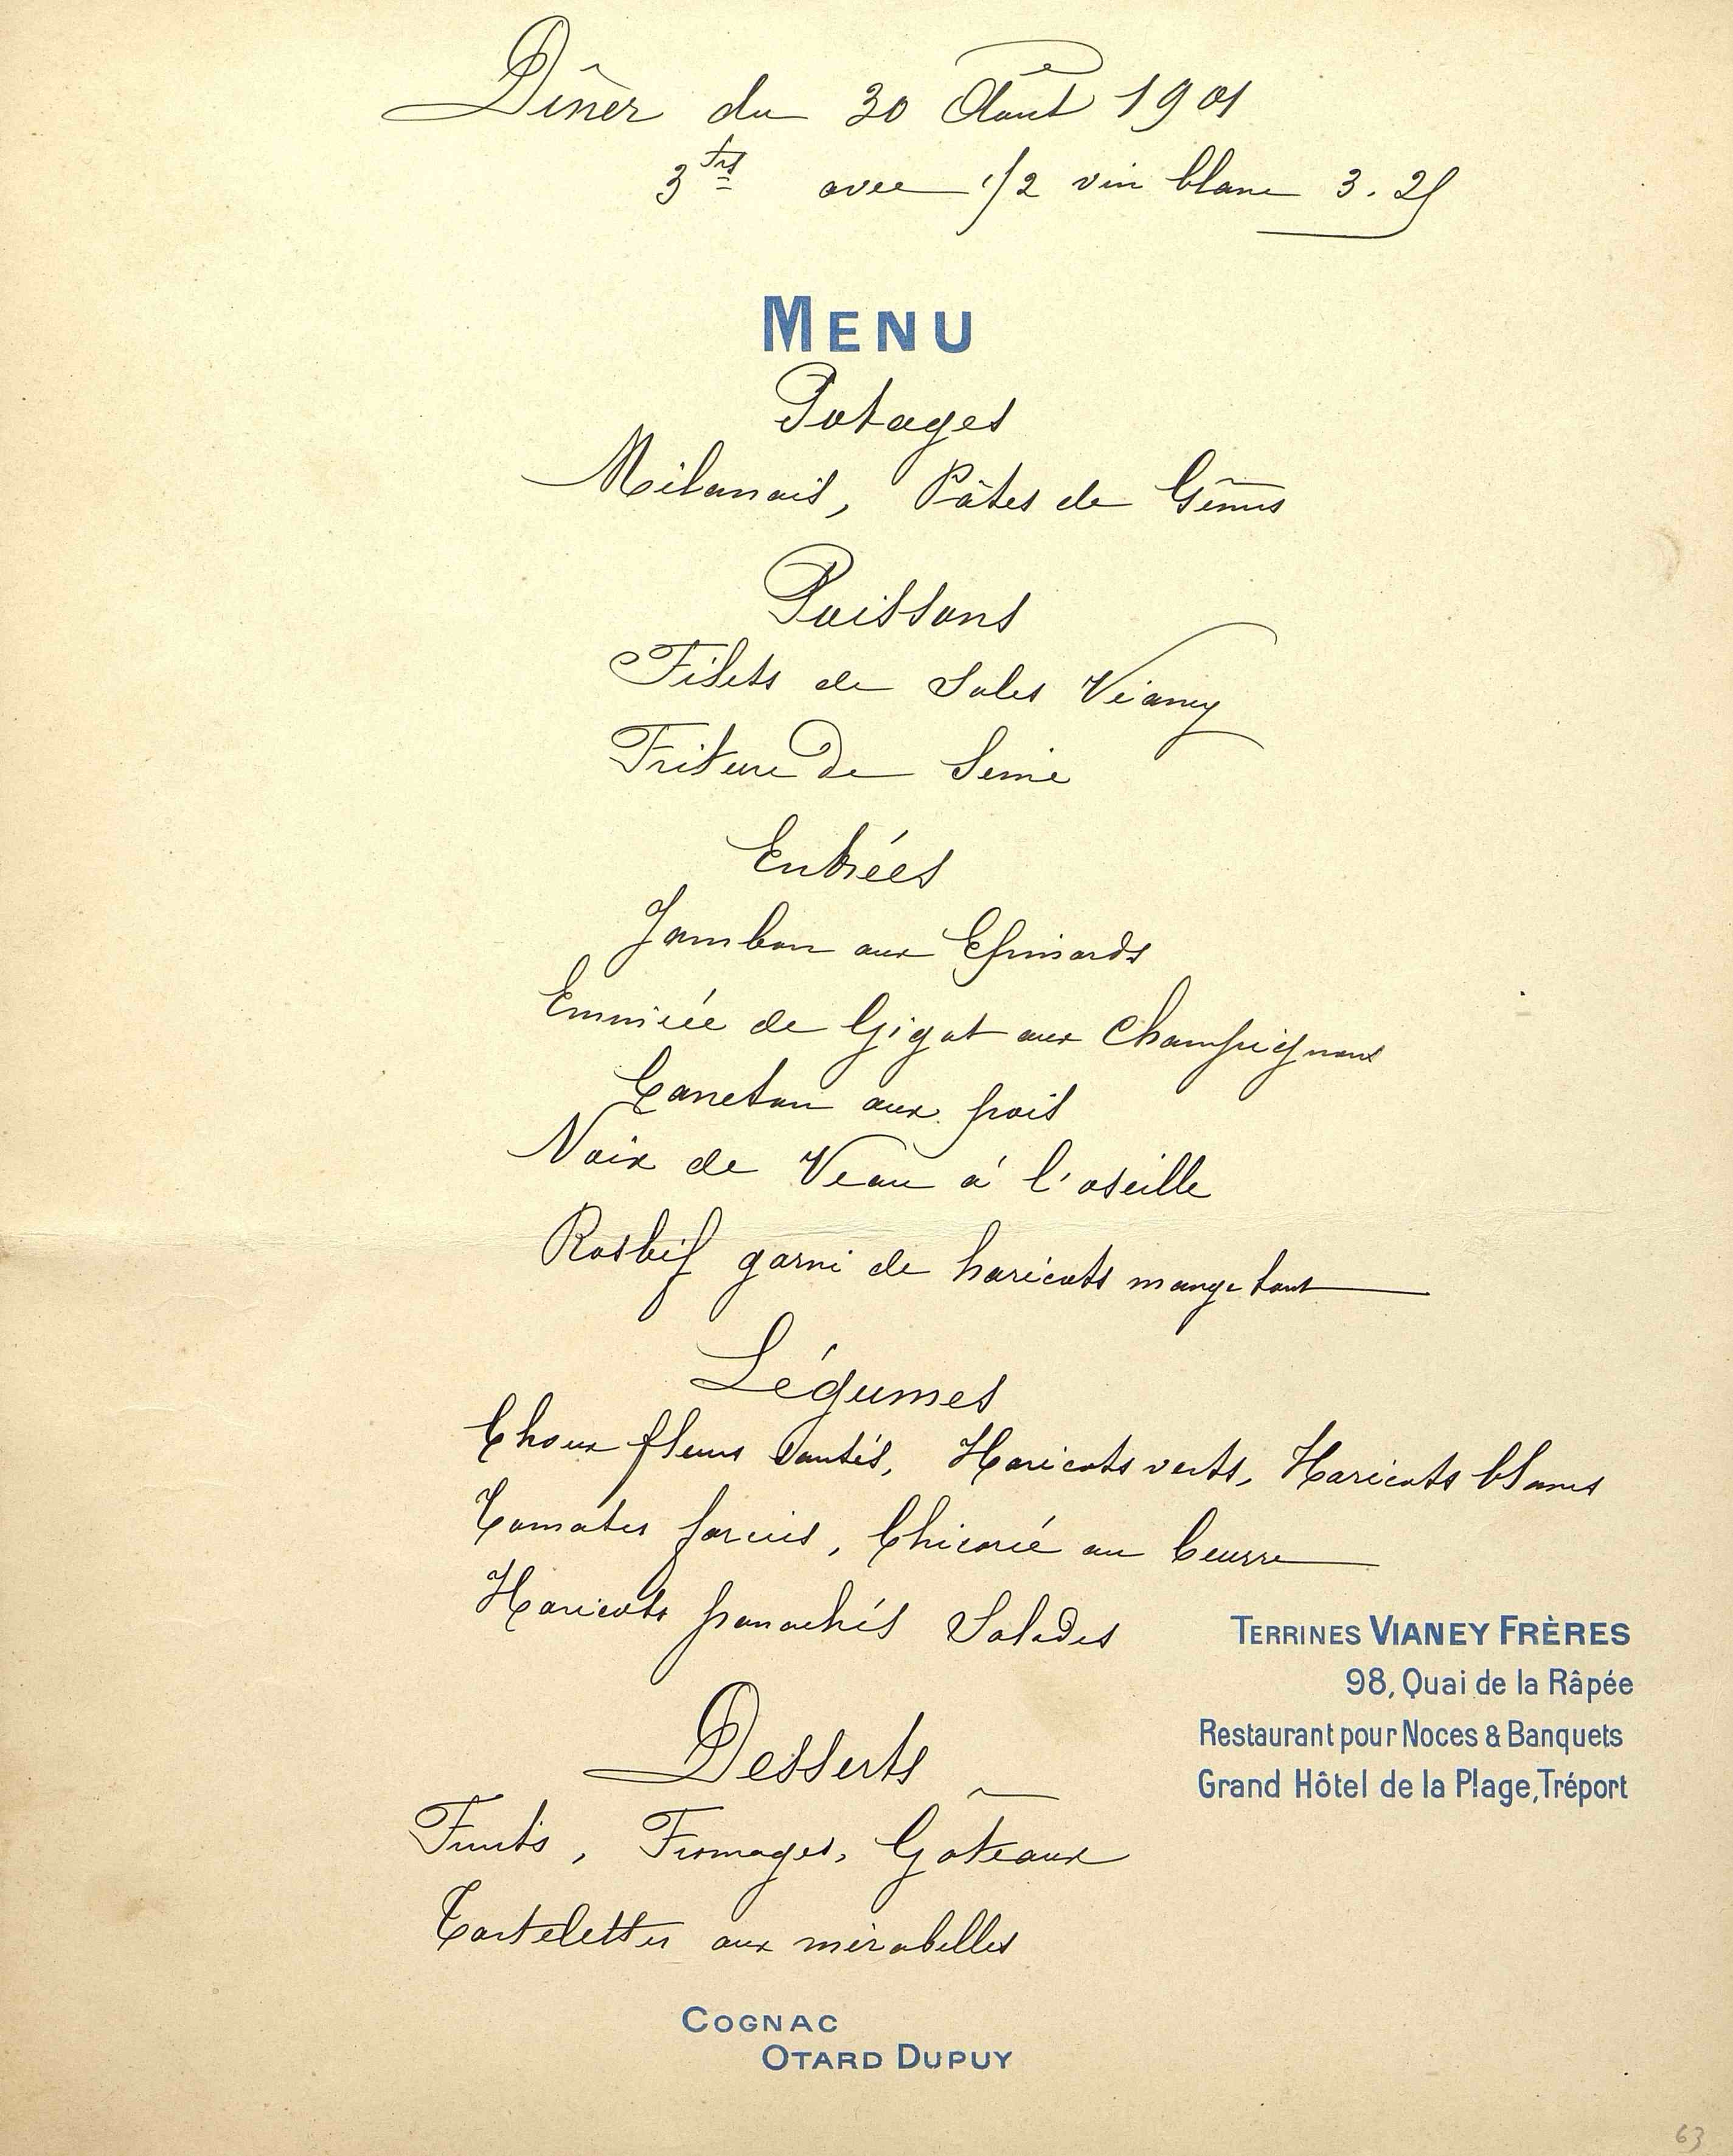 Dîner du 30 Août 1901
3 frs avec 1/2 vin blanc 3.25
MENU
Potages
Milanais, Pâtes de Gênes
Poissons
Filets de Soles Vianey
Friture de Seine
Entrées
Jambon aux Epinards
Emincée de Gigot aux Champignons
Caneton aux pois
Noix de Veau à l'oseille
Rosbif garni de haricots mange tout
Légumes
Choux fleurs Sautés, Haricots verts, Haricots blancs
Tomates farcies, Chicorée au beurre
Haricots panachés Salades
TERRINES VIANEY FRÈRES
98, Quai de la Râpée
Restaurant pour Noces & Banquets
Grand Hôtel de la Plage, Tréport
Desserts
Fruits, Fromages, Gâteaux
Tartelettes aux mirabelles
COGNAC
OTARD DUPUY
63